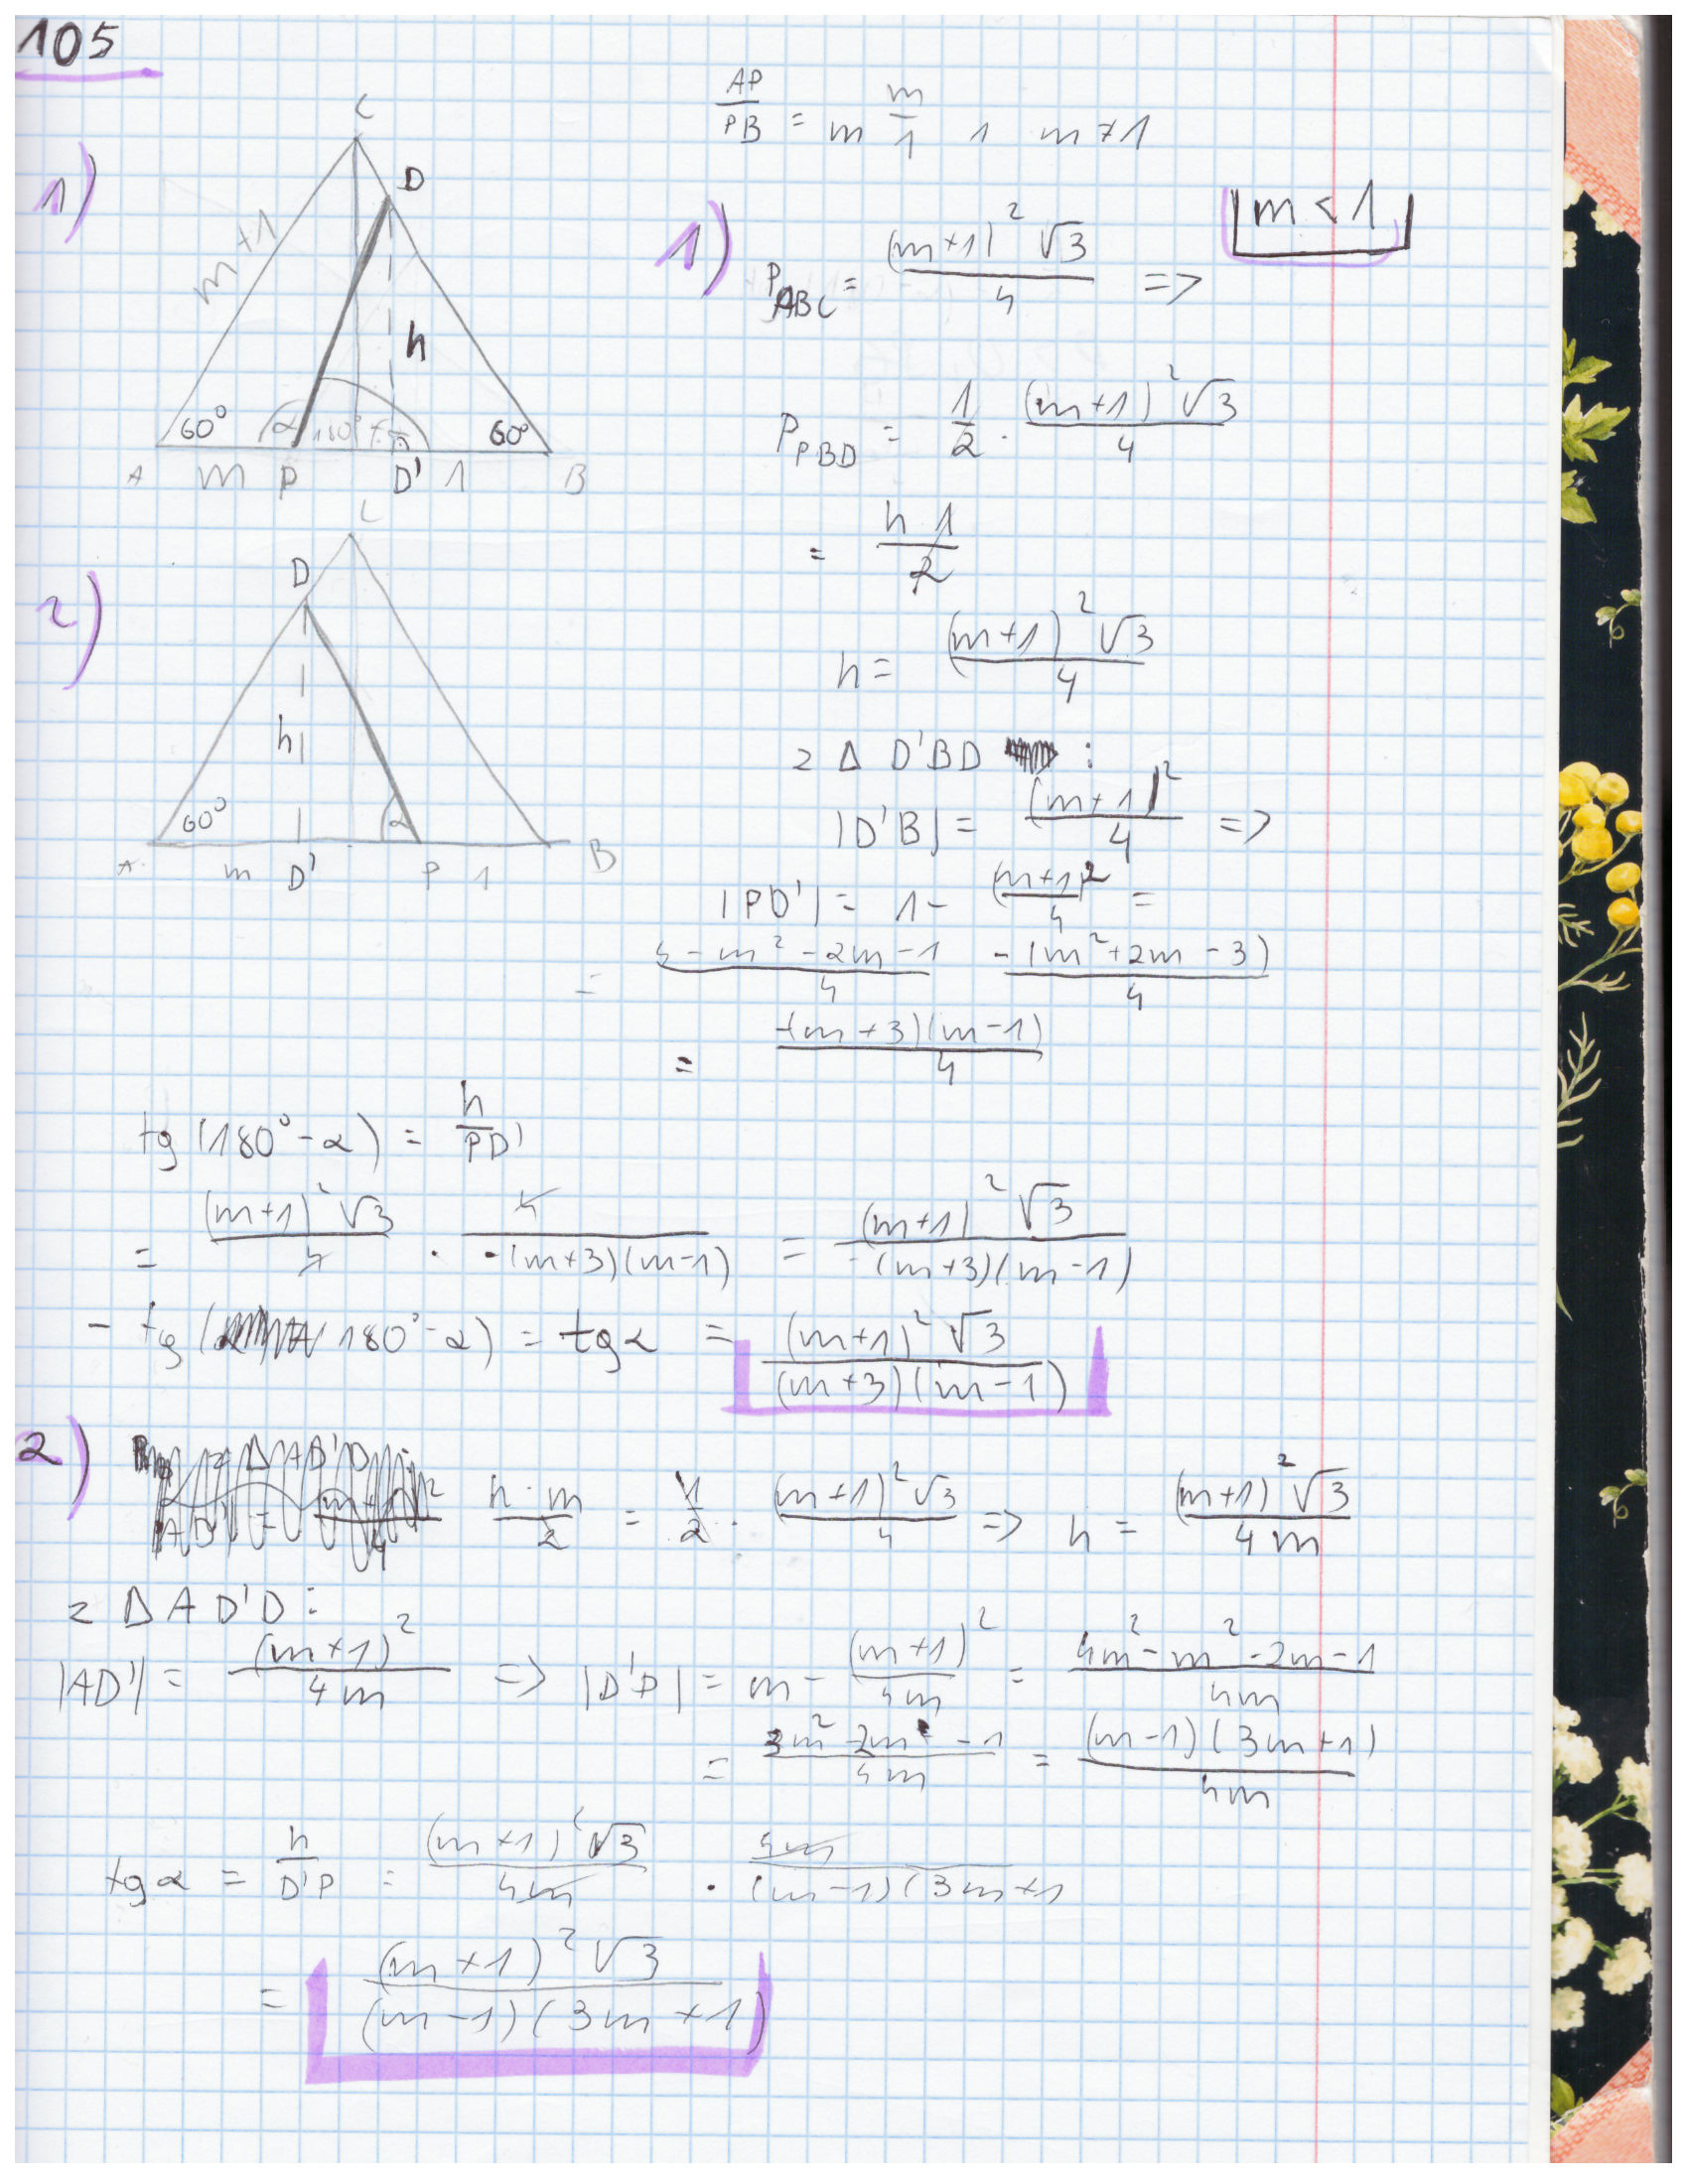 105
AP/PB = m m/1 1 m≠1
1)
C
D
m+1
h
60° α 180°-α 60°
A m P D' 1 B
1) P_ABC = (m+1)²√3/4 =>
m < 1
P_PBD = 1/2 · (m+1)²√3/4
= h 1/2
h = (m+1)²√3/4
2)
C
D
h
60° α
A m D' P 1 B
z Δ D'BD :
|D'B| = (m+1)²/4 =>
|PD'| = 1 - (m+1)²/4 =
= 4-m²-2m-1/4 -(m²+2m-3)/4
= -(m+3)(m-1)/4
tg(180°-α) = h/PD'
= (m+1)²√3/4 · 4/-(m+3)(m-1) = (m+1)²√3/-(m+3)(m-1)
- tg(180°-α) = tgα = (m+1)²√3/(m+3)(m-1)
2) h·m/2 = 1/2 · (m+1)²√3/4 => h = (m+1)²√3/4m
z Δ AD'D :
|AD'| = (m+1)²/4m => |D'P| = m - (m+1)²/4m = 4m²-m²-2m-1/4m
= 3m²-2m-1/4m = (m-1)(3m+1)/4m
tgα = h/D'P = (m+1)²√3/4m · 4m/(m-1)(3m+1
= (m+1)²√3/(m-1)(3m+1)